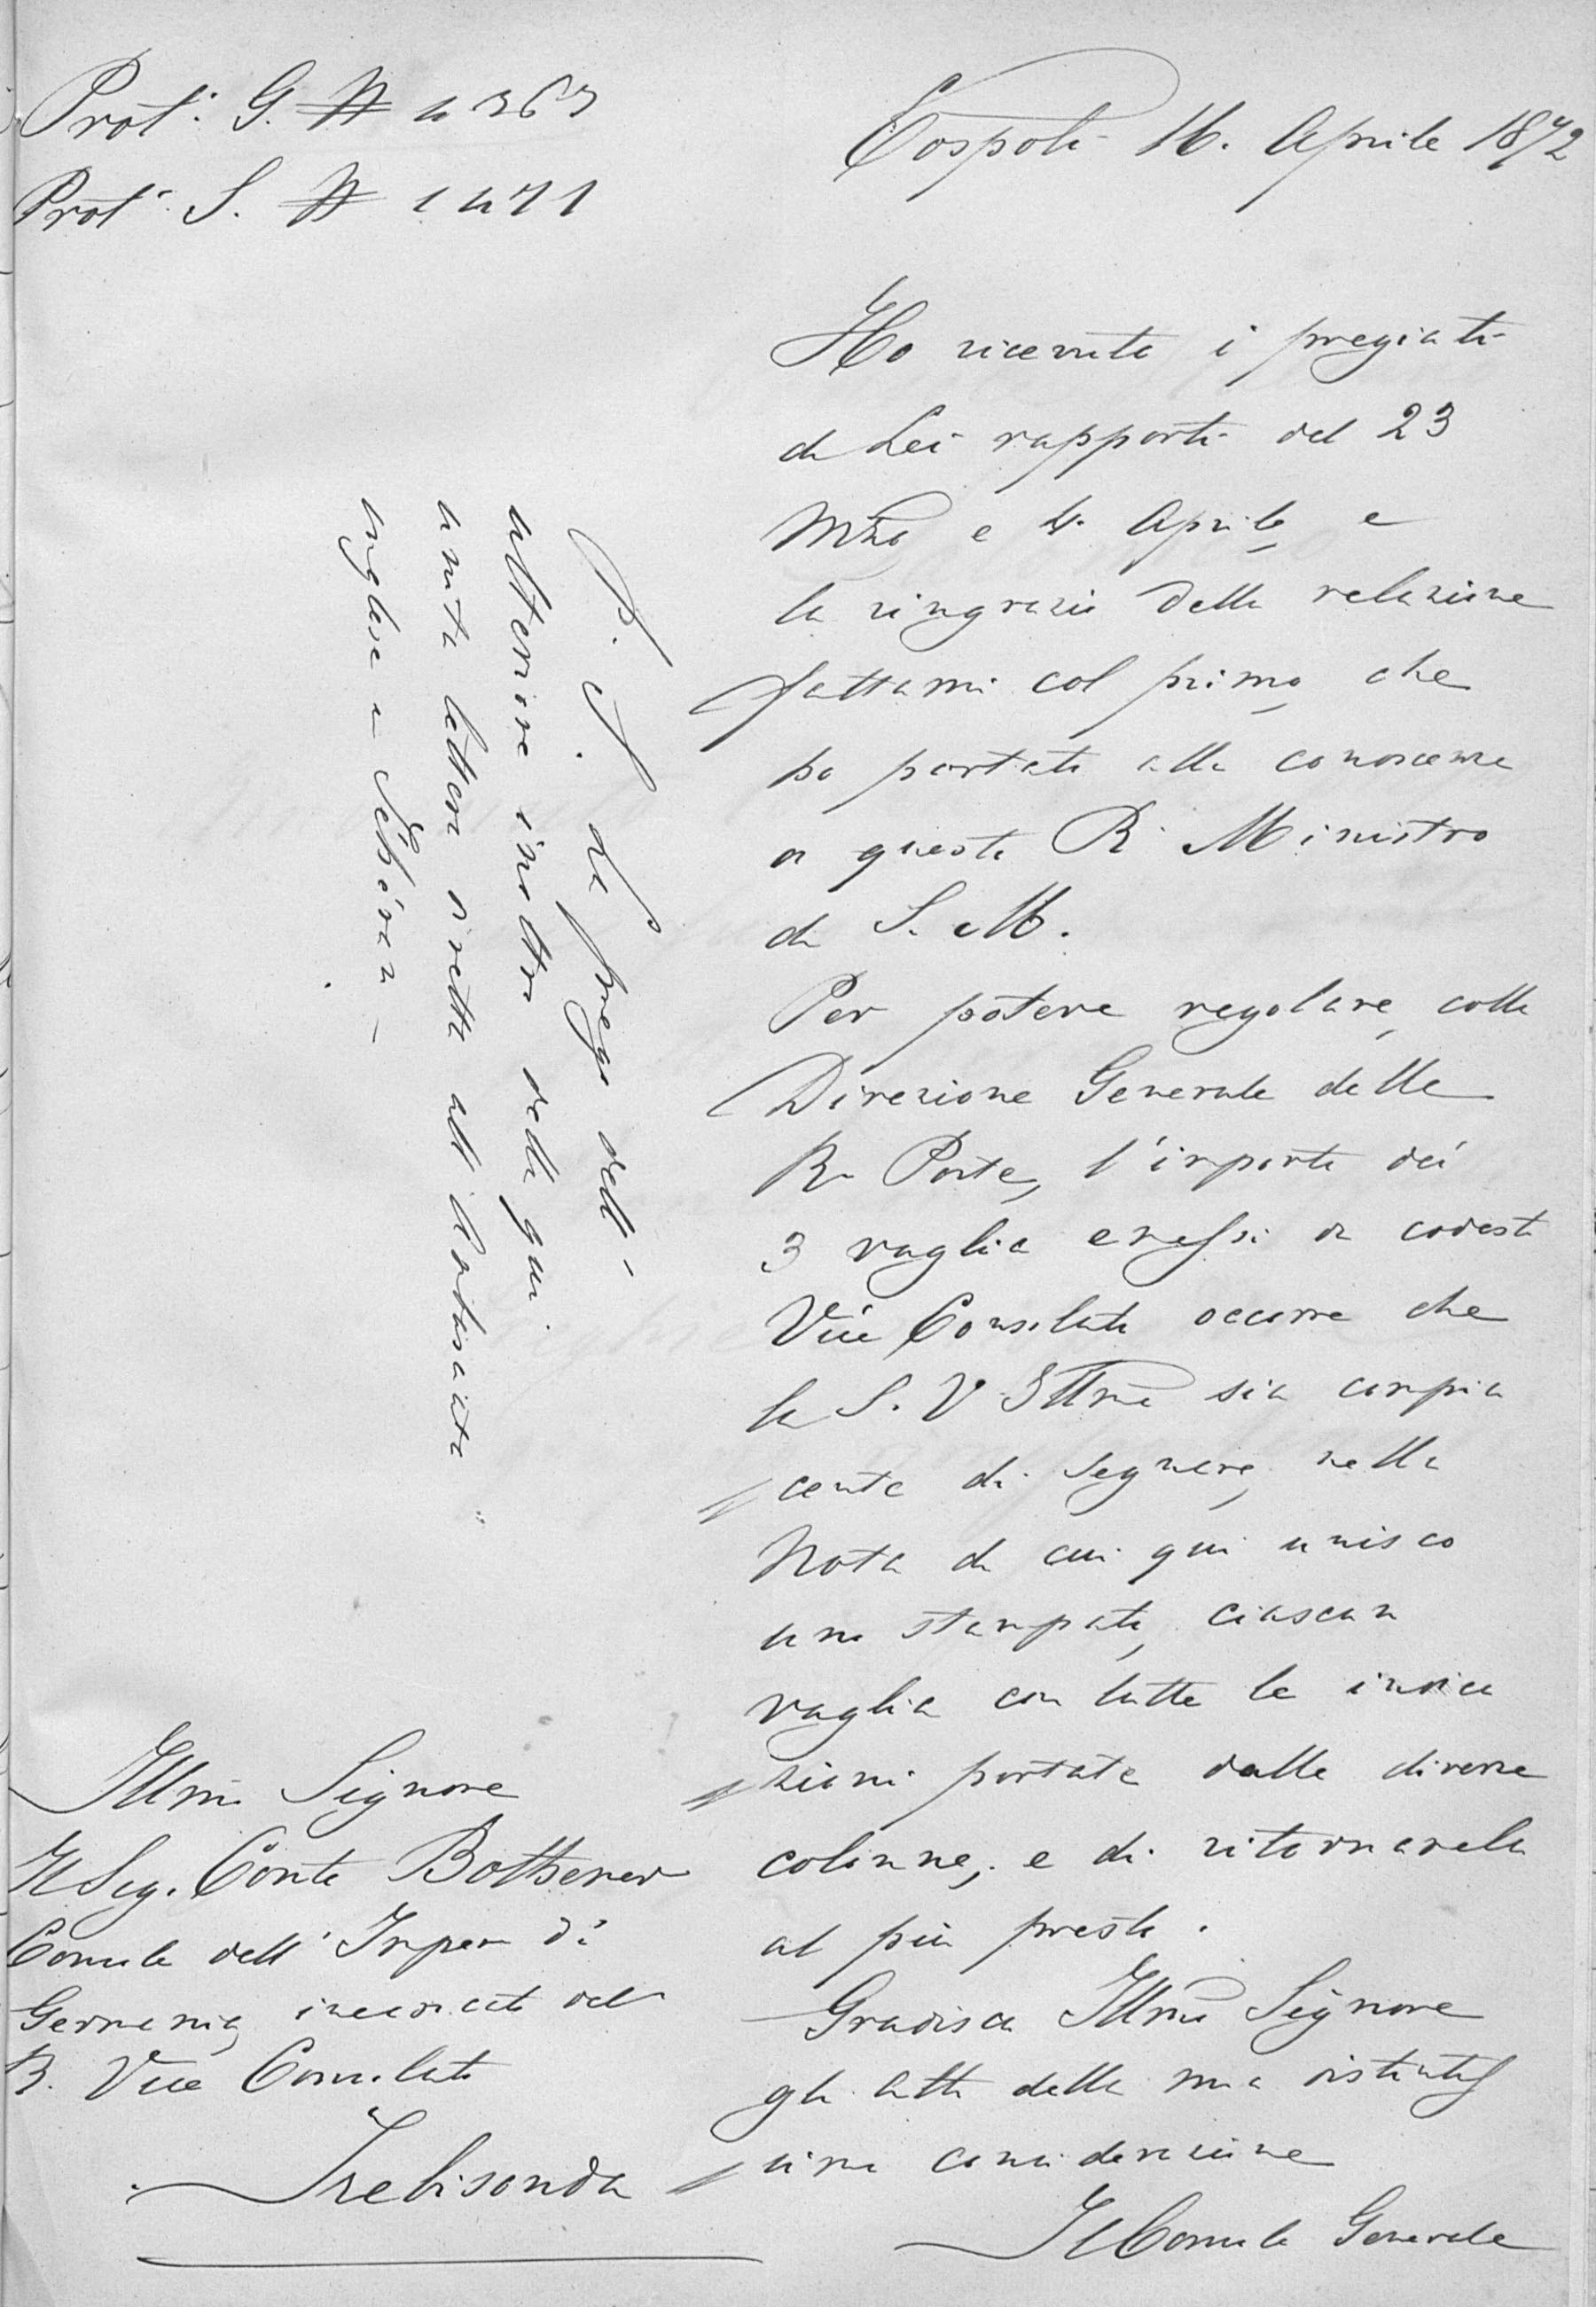 Prot. G. N 4363
Prot. S. N 1471
Cospoli 16. Aprile 1872
Ho ricevuto i pregiati
di Lei rapporti del 23
Mzo e 4. Aprile, e
la ringrazio della relazione
fattami col primo, che
ho portato alla conoscenza
di questo R. Ministro
di S. M.
Per potere regolare, colla
Direzione Generale delle
R. Poste, l'importo dei
3 vaglia emessi da codesto
Vice Consolato occorre che
la S. V. Illma sia compia
cente di segnare, nella
Nota di cui qui unisco
uno stampato, ciascun
vaglia con tutte le indica
zioni portate dalle diverse
colonne, e di ritornarela
al più presto.
Gradisca Illmo Signore
gli atti della mia distintis
sima considerazione
Il Console Generale
P. S. La prego dell'
ulteriore inoltro della qui
unita lettera diretta all'Ambasciata
inglese a Téhéran
Illmo Signore
Il Sig. Conte Bothmer
Console dell'Impero di
Germania, incaricato del
R. Vice Consolato
Trebisonda